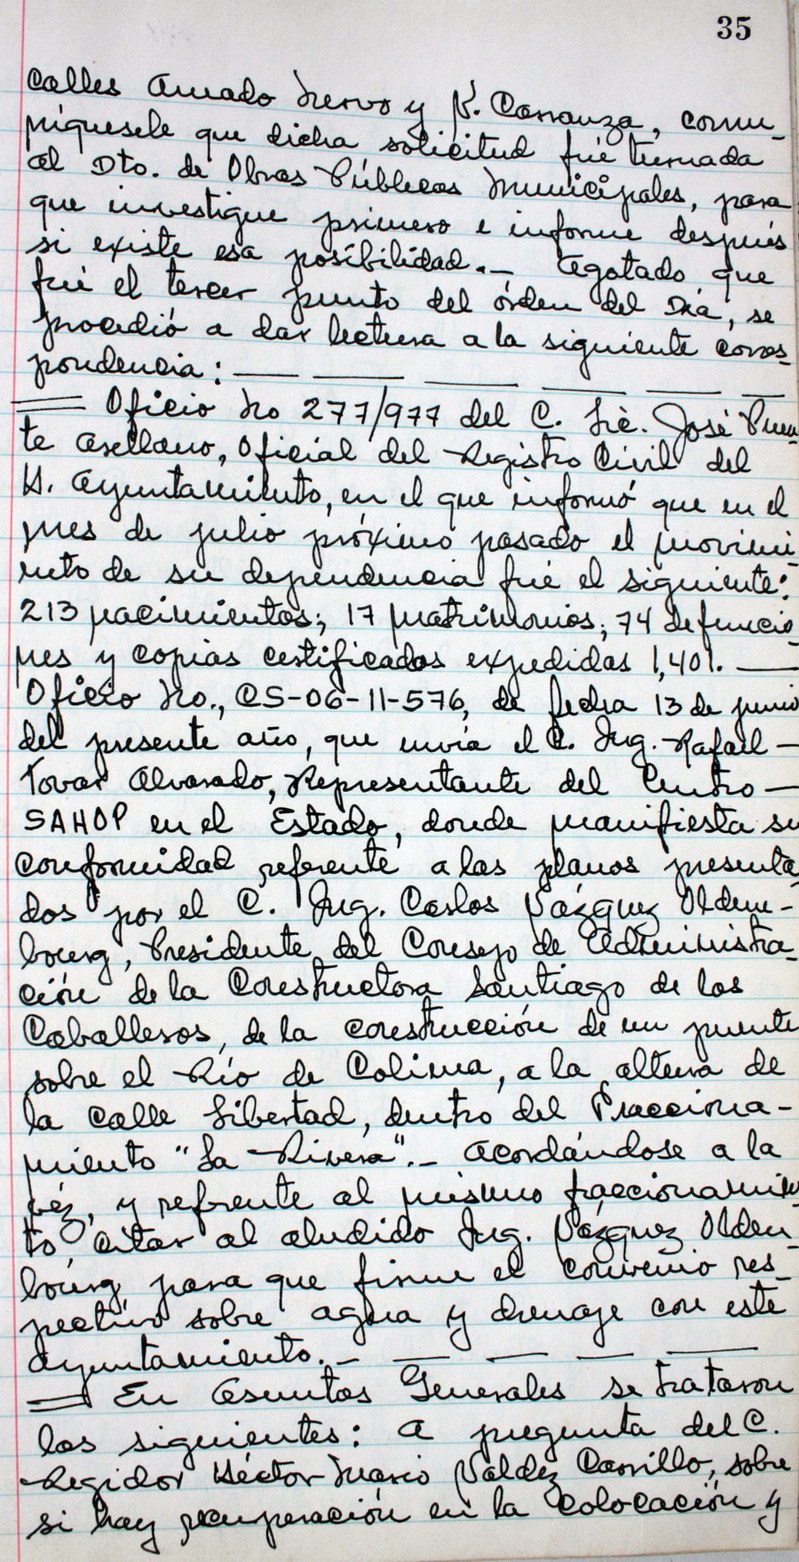 35
calles Amado Nervo y V. Carranza, comu-
níquesele que dicha solicitud fué turnada
al Dto. de Obras Públicas Municipales, para
que investigue primero e informe después
si existe esa posibilidad.- Agotado que
fué el tercer punto del órden del Día, se
procedió a dar lectura a la siguiente corres-
pondencia: — — — — — —
= Oficio No 277/977 del C. Lic. José Puen-
te Arellano, Oficial del Registro Civil del
H. Ayuntamiento, en el que informó que en el
mes de julio próximo pasado el movimi-
ento de su dependencia fué el siguiente:
213 nacimientos; 17 matrimonios; 74 defuncio-
nes y copias certificadas expedidas 1,401. —
Oficio No., CS-06-11-576, de fecha 13 de junio
del presente año, que envía el C. Ing. Rafael —
Tovar Alvarado, Representante del Centro —
SAHOP en el Estado, donde manifiesta su
conformidad referente a los planos presenta-
dos por el C. Ing. Carlos Vázquez Olden-
bourg, Presidente del Consejo de Administra-
ción de la Constructora Santiago de los
Caballeros, de la construcción de un puente
sobre el Río de Colima, a la altura de
la calle Libertad, dentro del Fracciona-
miento "La Rivera".- Acordándose a la
véz, y refrente al mismo fraccionamien-
to citar al aludido Ing. Vázquez Olden-
bourg para que firme el convenio res-
pectivo sobre agua y drenaje con este
Ayuntamiento.- — — — —
= En Asuntos Generales se trataron
los siguientes: A pregunta del C.
Regidor Héctor Mario Valdéz Carrillo, sobre
si hay recuperación en la colocación y